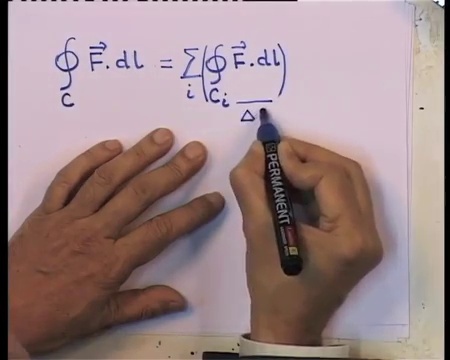 ∮_C F⃗. dl = ∑_i (∮_{C_i} F⃗. dl)
Δ
PERMANENT